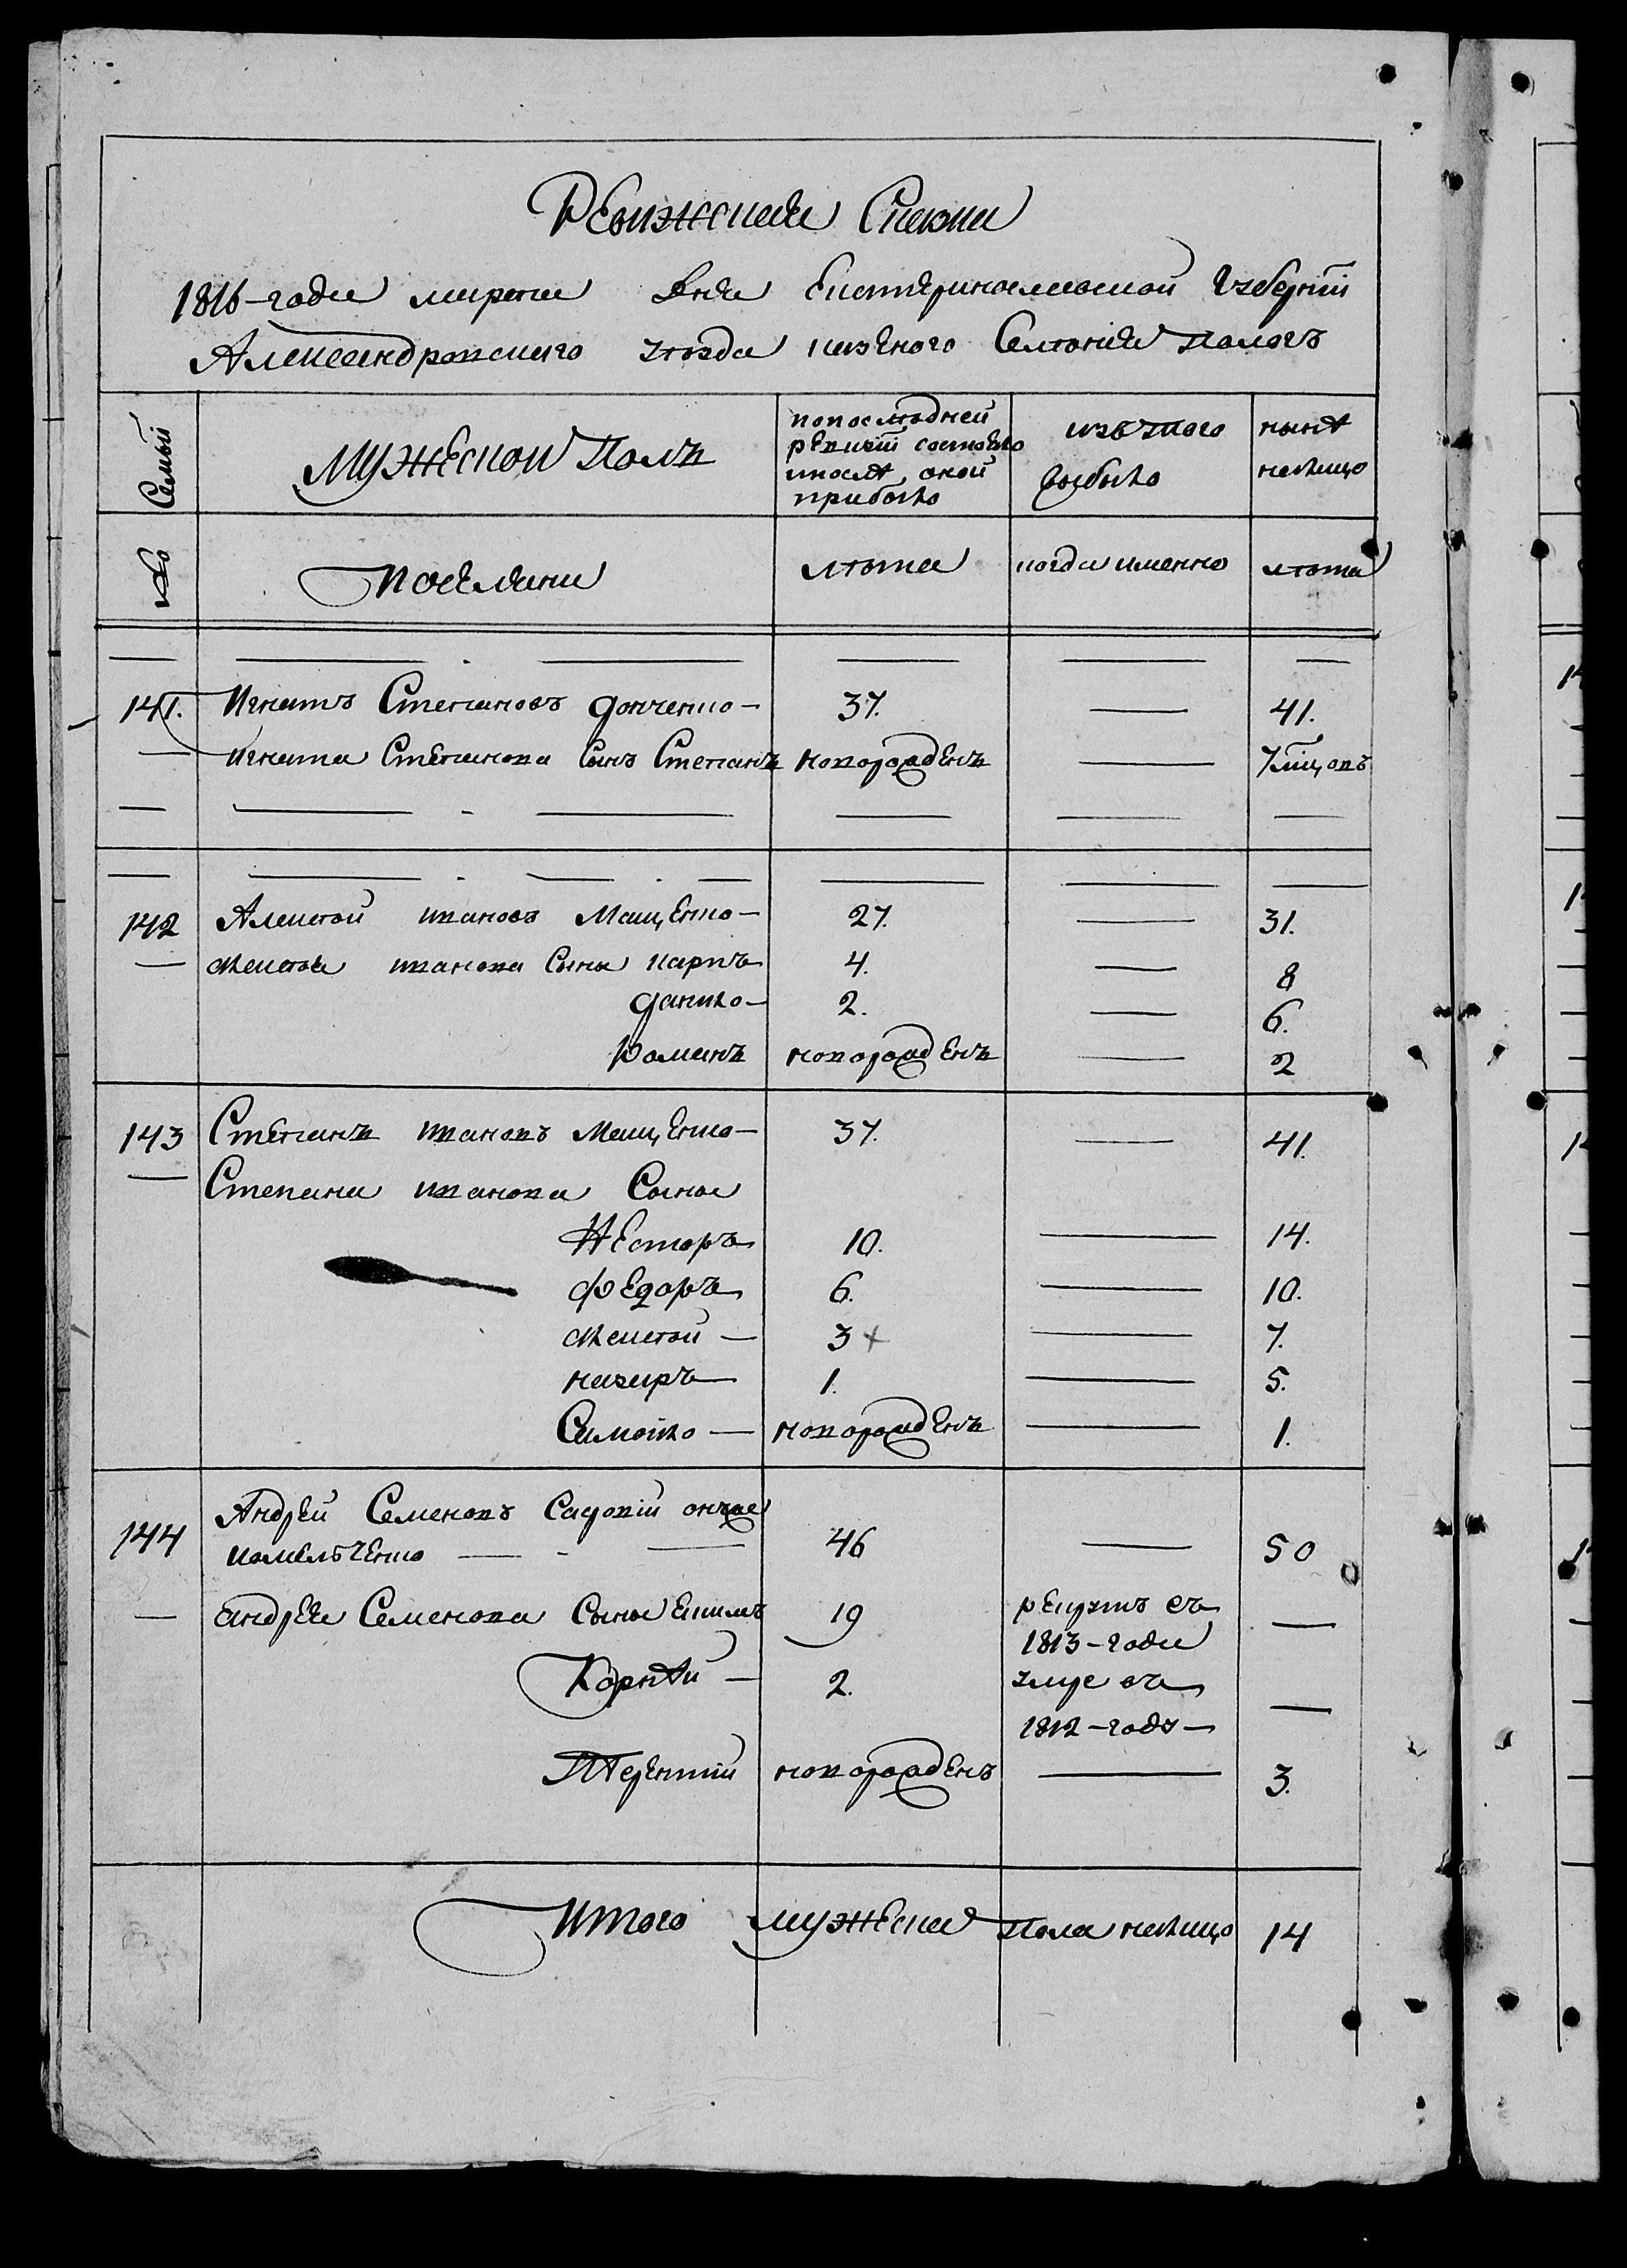 Ревижская Скаска
1816-года марта дня Екатеринославской Губерніи
Александровского уезда казеного Селения Пологъ
Семьи
Мужеской Полъ
попоследней
ревизіи состояло
ипосле оной
прибыло
изъ того
выбыло
ныне
налицо
№
Поселяни
лета
когда именно
лета
141. Игнатъ Степановъ донченко 37. 41.
Игната Степанова Сынъ Степанъ новорожденъ 7 міцовъ
142 Алексей ивановъ Мащенко 27. 31.
Алексея иванова Сыны карпъ 4. 8
данило 2. 6.
Романъ новорожденъ 2
143 Степанъ ивановъ Мащенко 37. 41.
Степана иванова Сыны
Несторъ 10. 14.
Федоръ 6. 10.
Алексей 3 + 7.
назаръ 1. 5.
Самойло новорожденъ 1.
Андрей Семеновъ Садовій онже
144 комельченко 46 50
андрея Семенова Сыны екимъ 19 рекрутъ въ
1813-года
Корней 2. умре въ
1812-году
Терентий новорожденъ 3.
Итого мужеска пола налицо 14